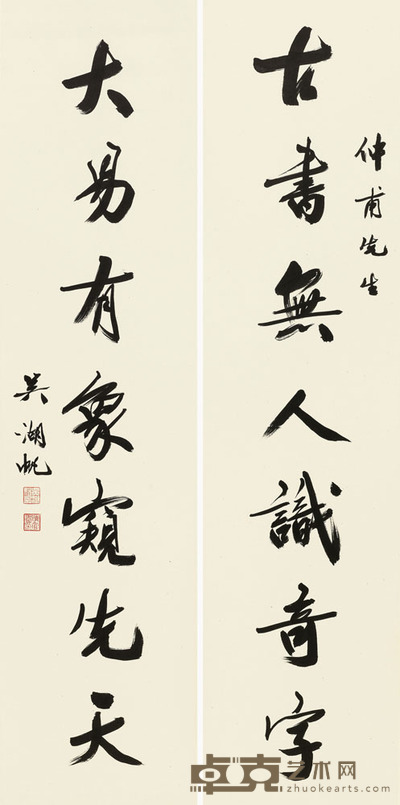 仲甫先生
古書無人識奇字
大易有象窺先天
吳湖帆
卓克艺术网
zhuokearts.com